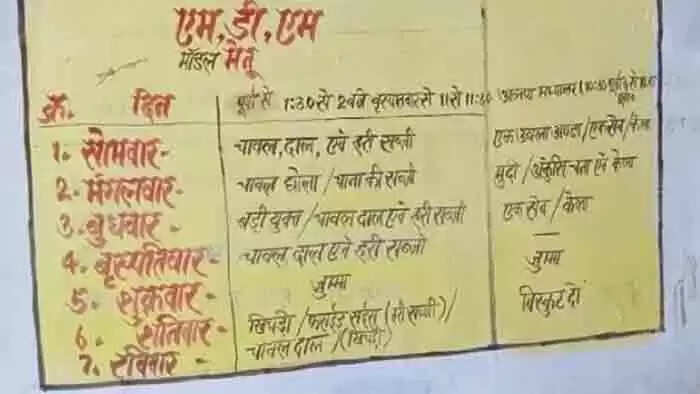 एम, डी, एम
मॉडल मेनू
क्र. दिन पूर्वा से 1:30 से 2 बजे बृस्पतवार से 11 से 11:30
1. सोमवार - चावल, दाल, एवं हरी सब्जी एक उबला अण्डा / एक सेव / केला
2. मंगलवार - चावल छोला / चाना की सब्जी मुढी / अंकुरित चना एवं केला
3. बुधवार - बड़ी युक्त / चावल दाल एवं हरी सब्जी एक सेव / केला
4. बृस्पतिवार - चावल दाल एवं हरी सब्जी -
5. शुक्रवार - जुम्मा जुम्मा
6. शनिवार - खिचड़ी / फराईड राईस (हरी सब्जी) / बिस्कुट दो
7. रविवार - चावल दाल / (खिचड़ी)